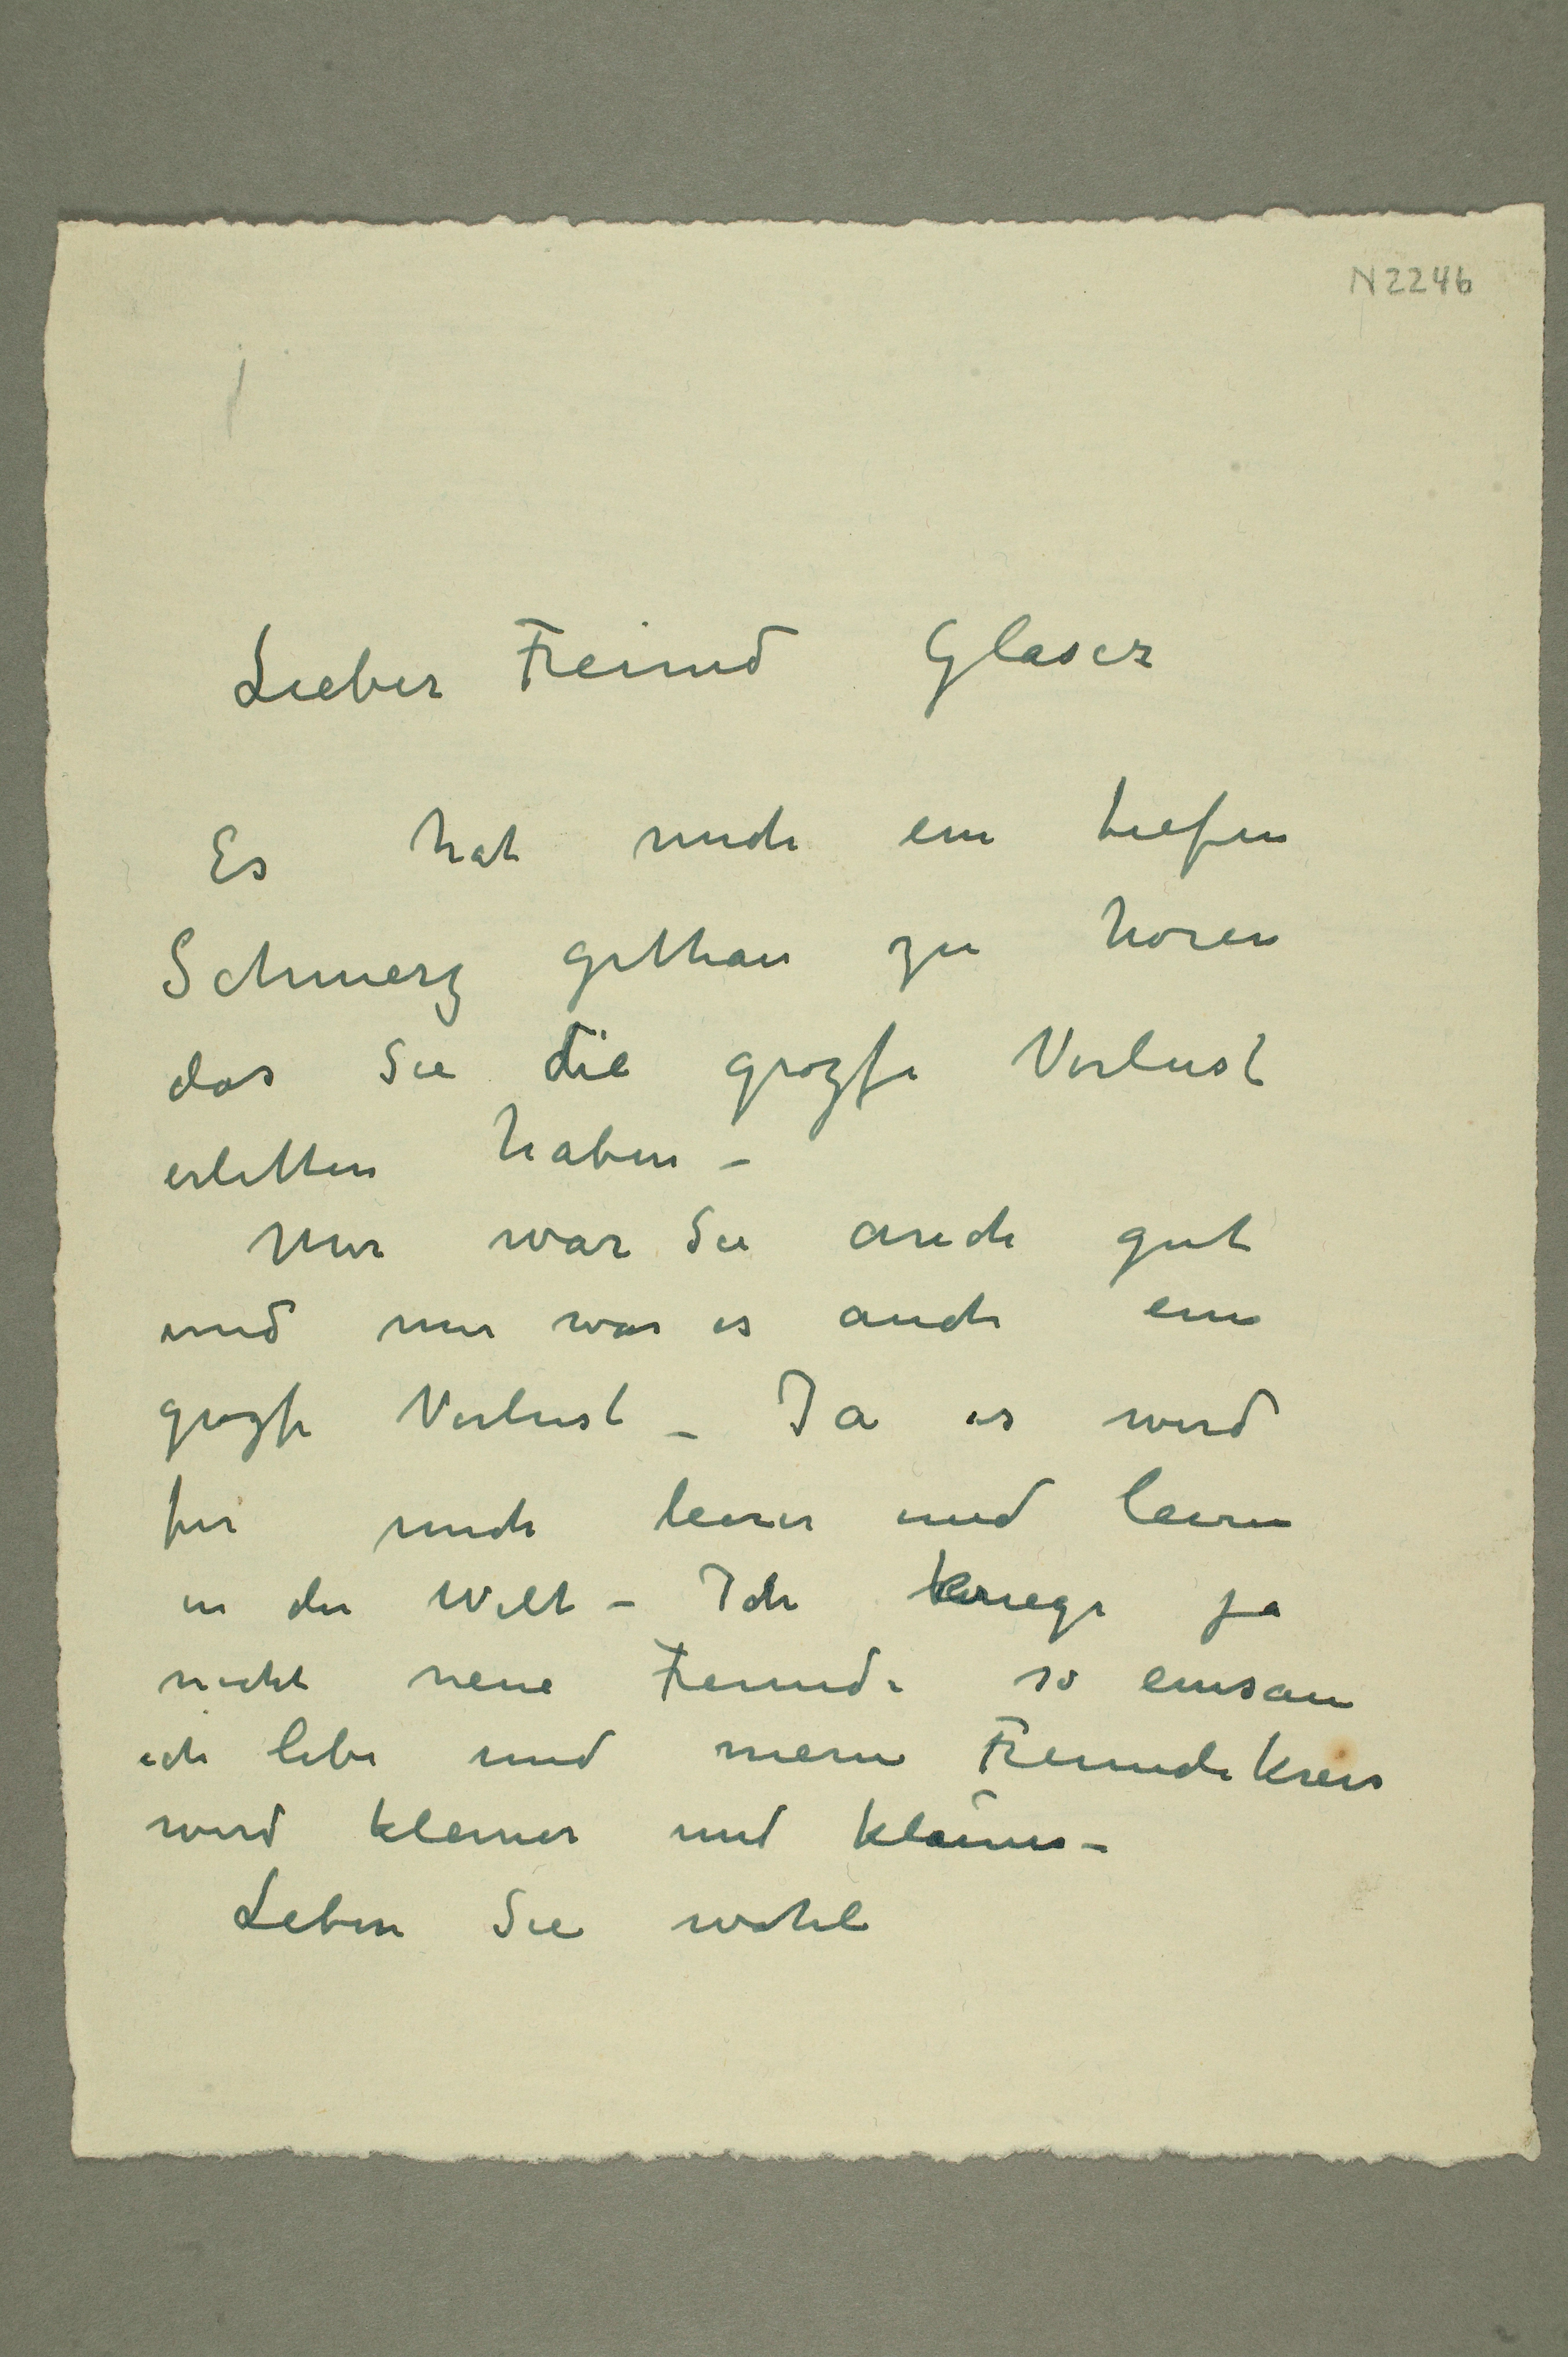 N 2246
Lieber Freund Glaser
Es hat mich ein tiefen
Schmerz gethan zu horen
das Sie die grozse Verlust
erlitten haben –
Mir war Sie auch gut
und mir war es auch ein
grozse Verlust – Ja es wird
fur mich leerer und leerer
in der Welt – Ich kriege ja
nicht neue Freunde so einsam
ich lebe und meine Freundekreis
wird kleiner und kleiner –
Leben Sie wohl